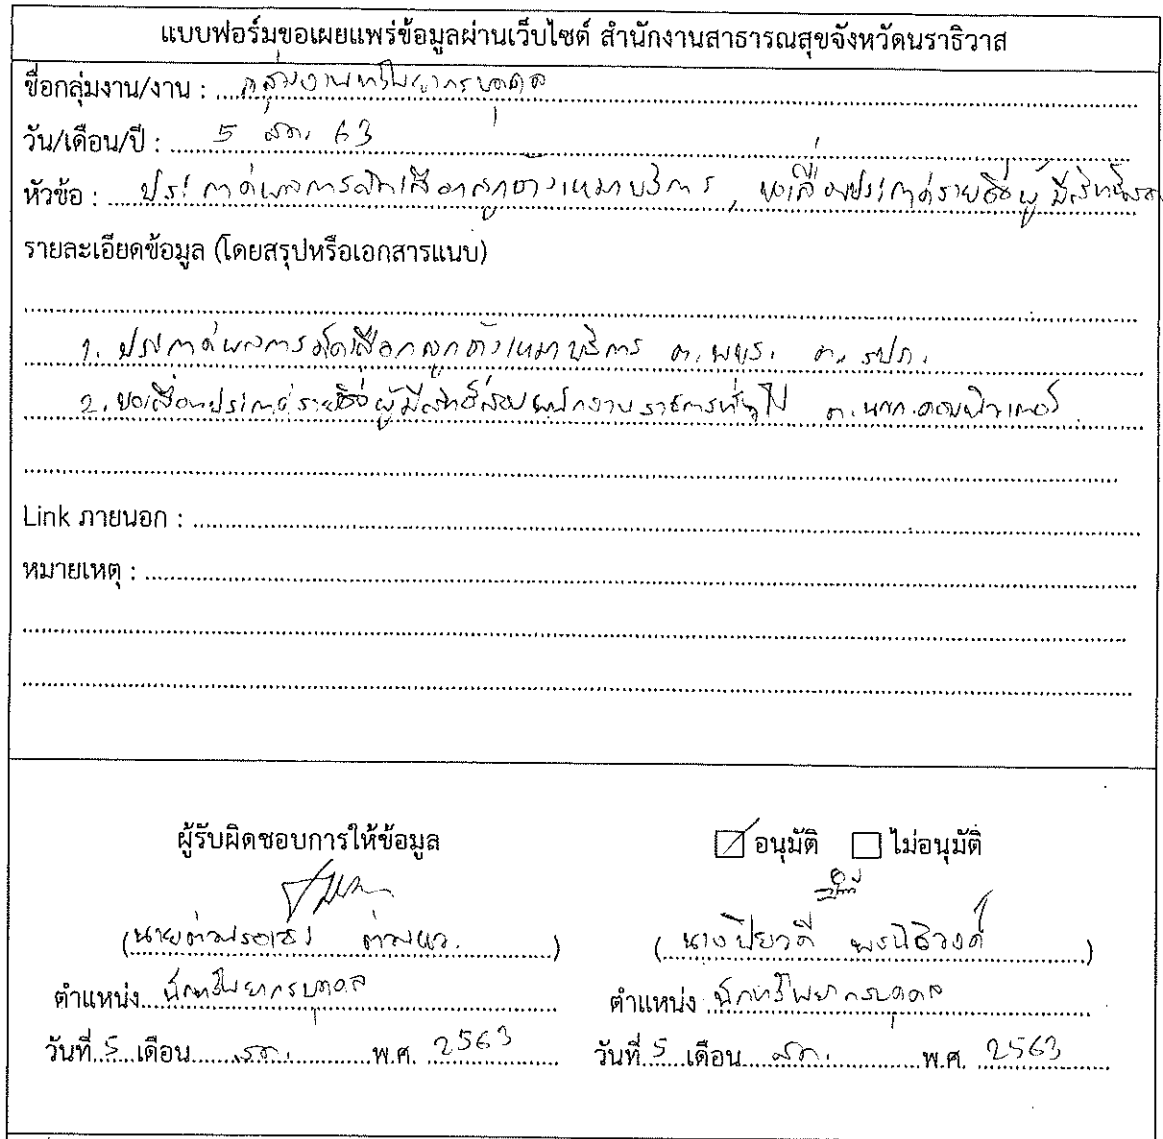 แบบฟอร์มขอเผยแพร่ข้อมูลผ่านเว็บไซต์ สำนักงานสาธารณสุขจังหวัดนราธิวาส
ชื่อกลุ่มงาน/งาน : กลุ่มงานทรัพยากรบุคคล
วัน/เดือน/ปี : 5 สค. 63
หัวข้อ : ประกาศผลการคัดเลือกลูกจ้างเหมาบริการ, ขอเลื่อนประกาศรายชื่อผู้มีสิทธิ์สอบ
รายละเอียดข้อมูล (โดยสรุปหรือเอกสารแนบ)
1. ประกาศผลการคัดเลือกลูกจ้างเหมาบริการ ต. พขร. ต. รปภ.
2. ขอเลื่อนประกาศรายชื่อผู้มีสิทธิ์สอบพนักงานราชการทั่วไป ต. นวก.คอมพิวเตอร์
Link ภายนอก :
หมายเหตุ :
ผู้รับผิดชอบการให้ข้อมูล
อนุมัติ ไม่อนุมัติ
(นาย )
(นางปิยวดี )
ตำแหน่ง นักทรัพยากรบุคคล
ตำแหน่ง นักทรัพยากรบุคคล
วันที่ 5 เดือน สค. พ.ศ. 2563
วันที่ 5 เดือน สค. พ.ศ. 2563